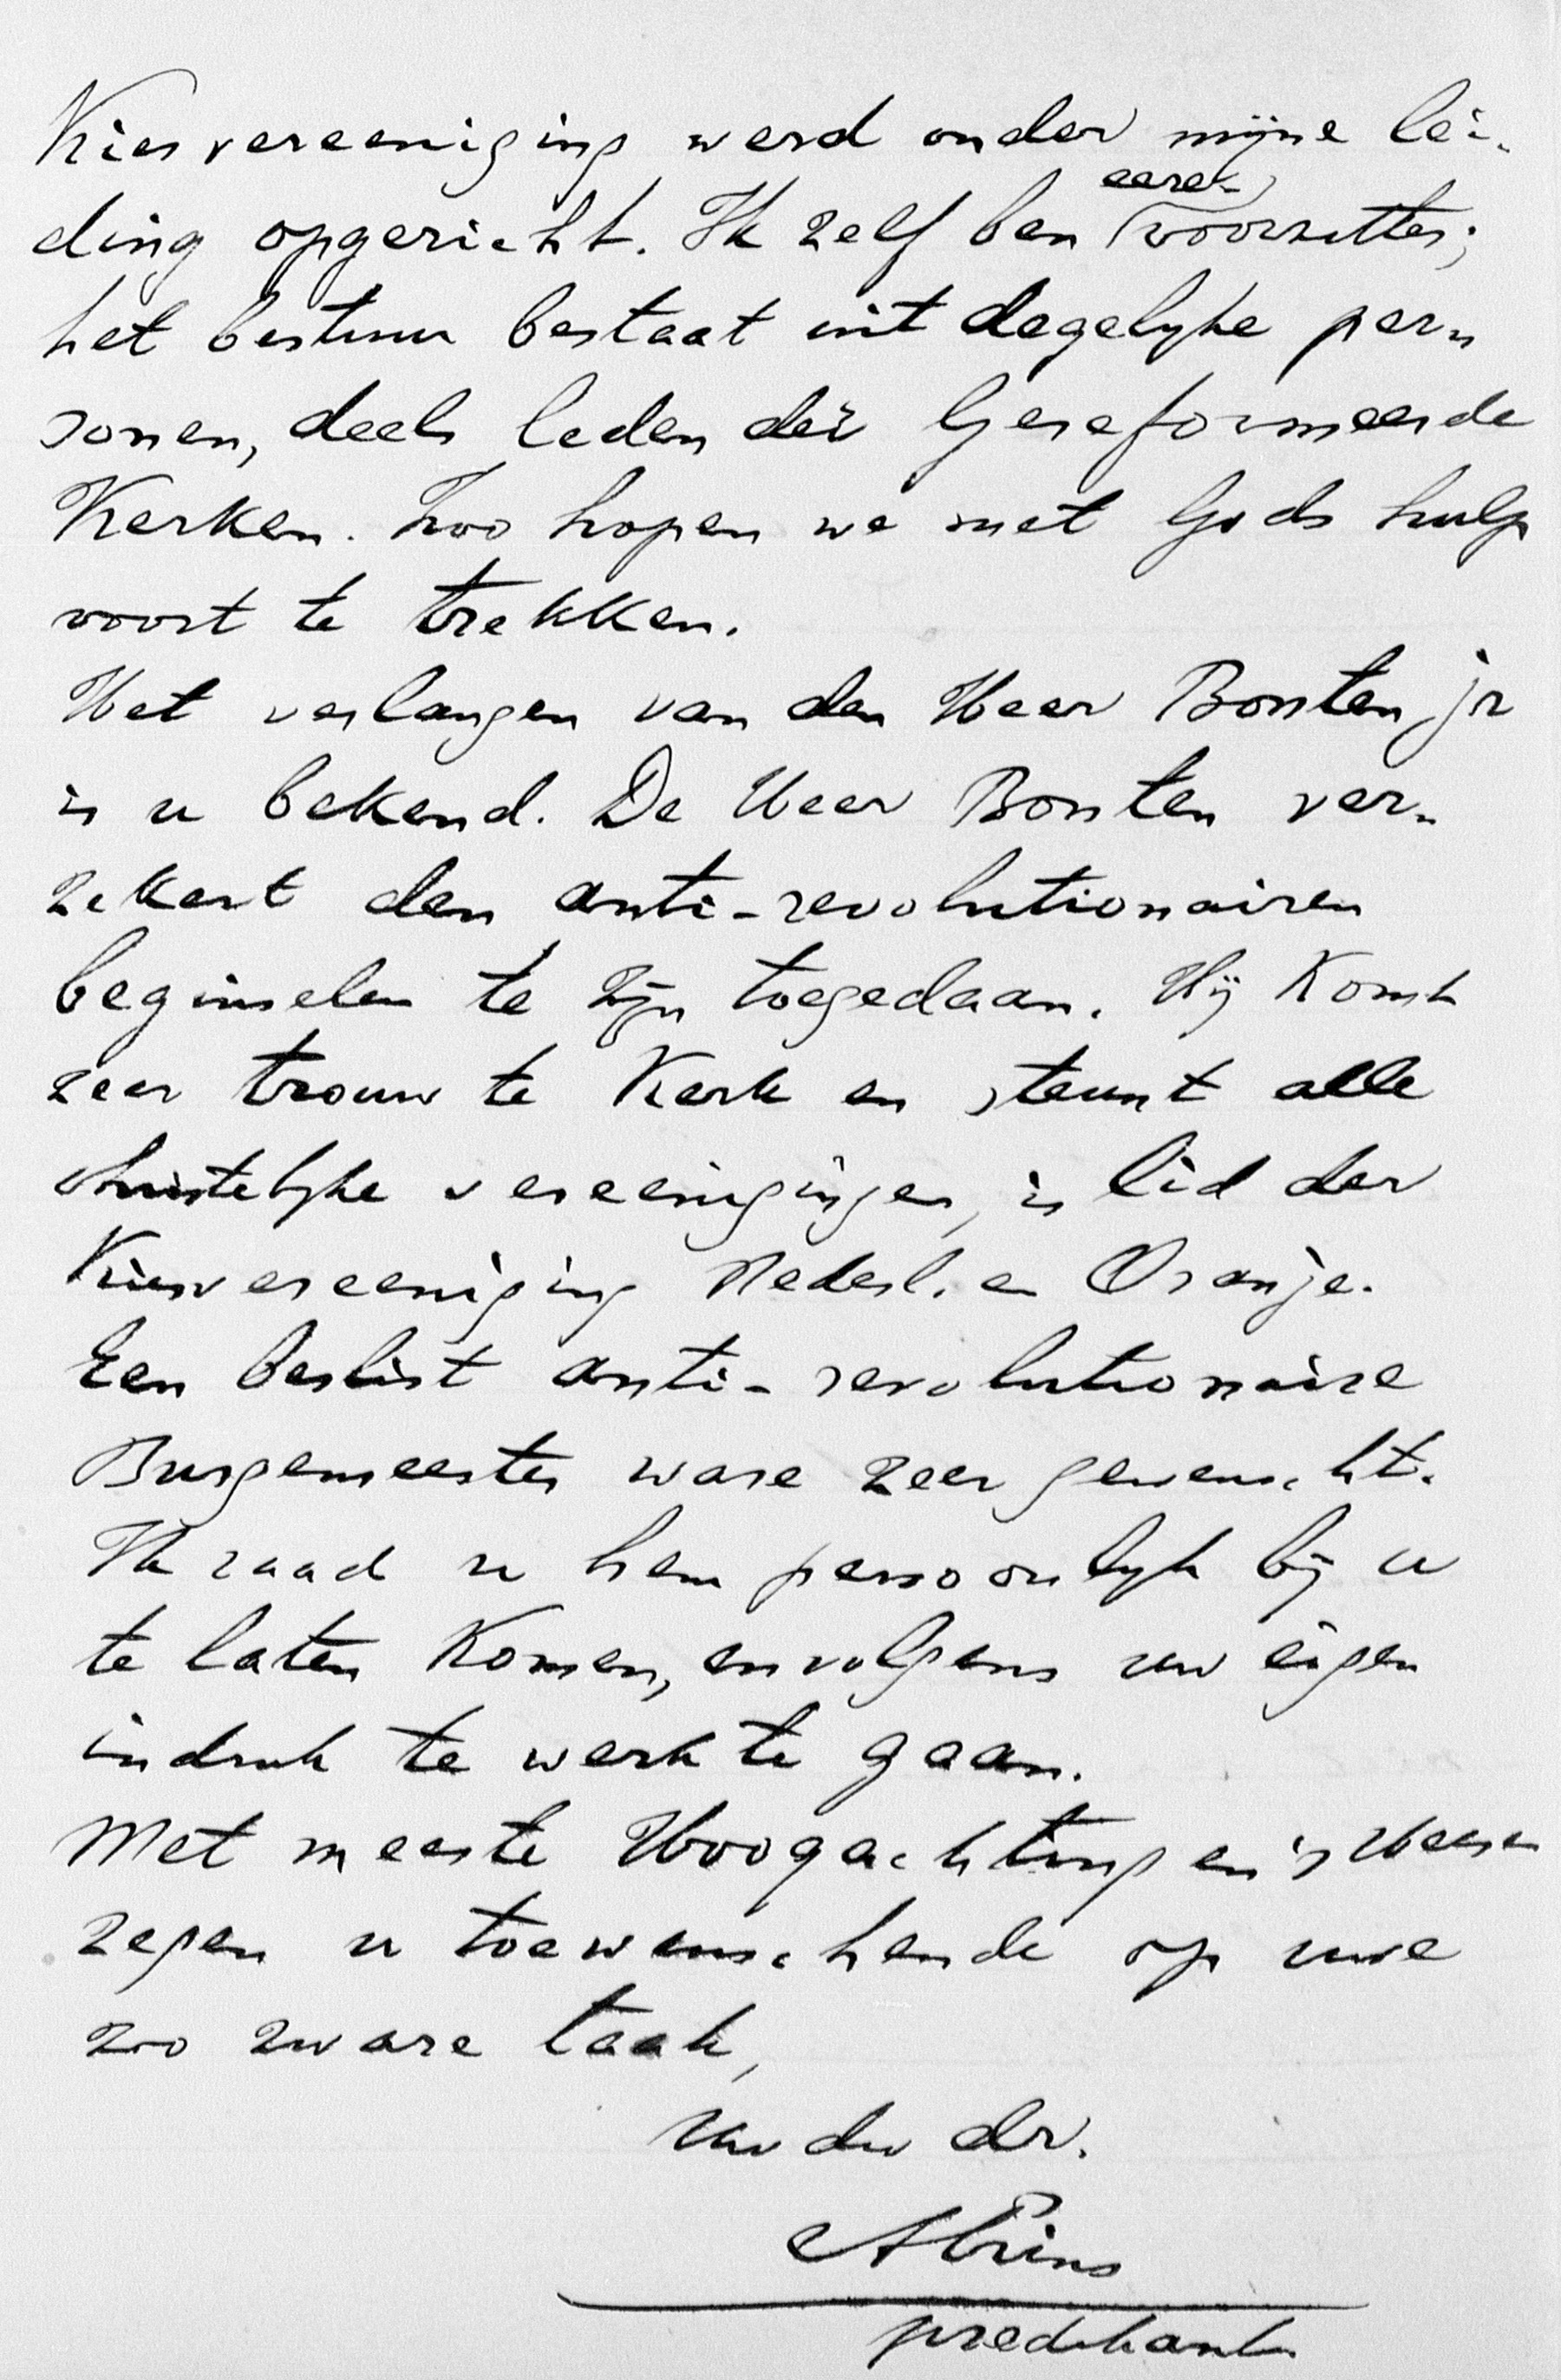 Kiesvereeniging werd onder mijne lei-
ding opgericht. Ik zelf ben eere-voorzitter;
het bestuur bestaat uit degelijke per-
sonen, deels leden der Gereformeerde
Kerken. Zoo hopen we met Gods hulp
voort te trekken.
Het verlangen van den Heer Bonten jr
is u bekend. De Heer Bonten ver-
zekert den anti-revolutionairen
beginselen te zijn toegedaan. Hij komt
zeer trouw te Kerk en steunt alle
christelijke vereenigingen, is lid der
Kiesvereeniging Nederl. en Oranje.
Een beslist anti-revolutionaire
Burgemeester ware zeer gewenscht.
Ik raad u hem persoonlijk bij u
te laten komen, en volgens uw eigen
indruk te werk te gaan.
Met meeste Hoogachting en 's Heeren
zegen u toewenschende op uwe
zoo zware taak,
Uw dw dr.
Prins
predikant